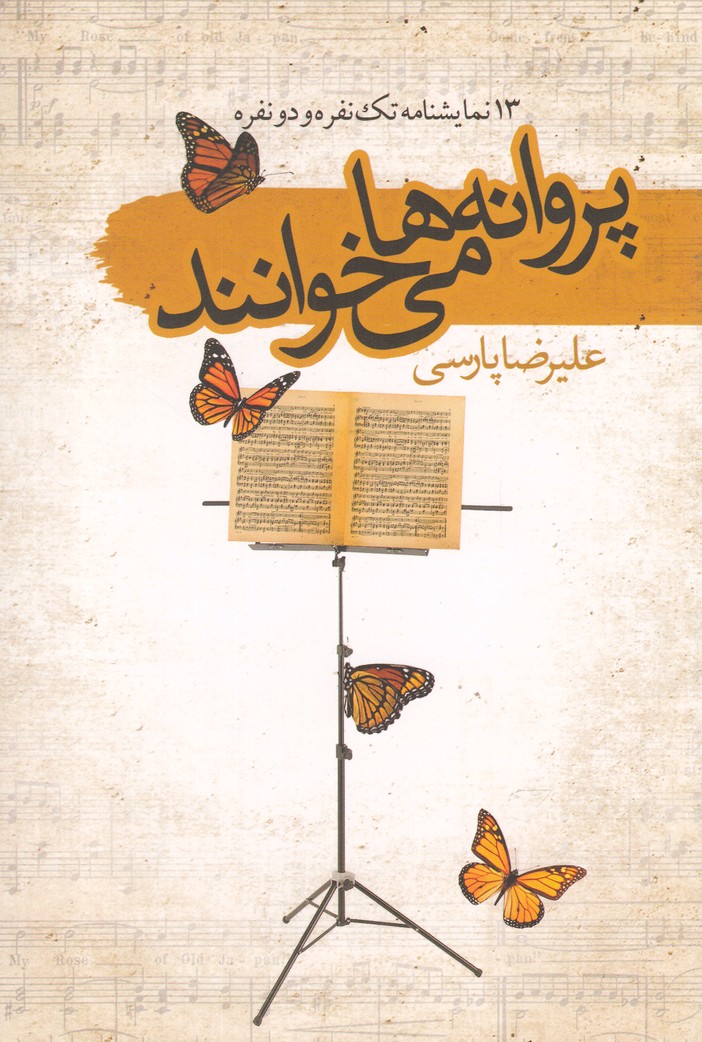 My Rose of old Ja - pan
Come from be-hind
۱۳ نمایشنامه تک نفره و دو نفره
پروانه‌ها
می‌خوانند
علیرضا پارسی
My Rose of Old Ja - pan
pan!"